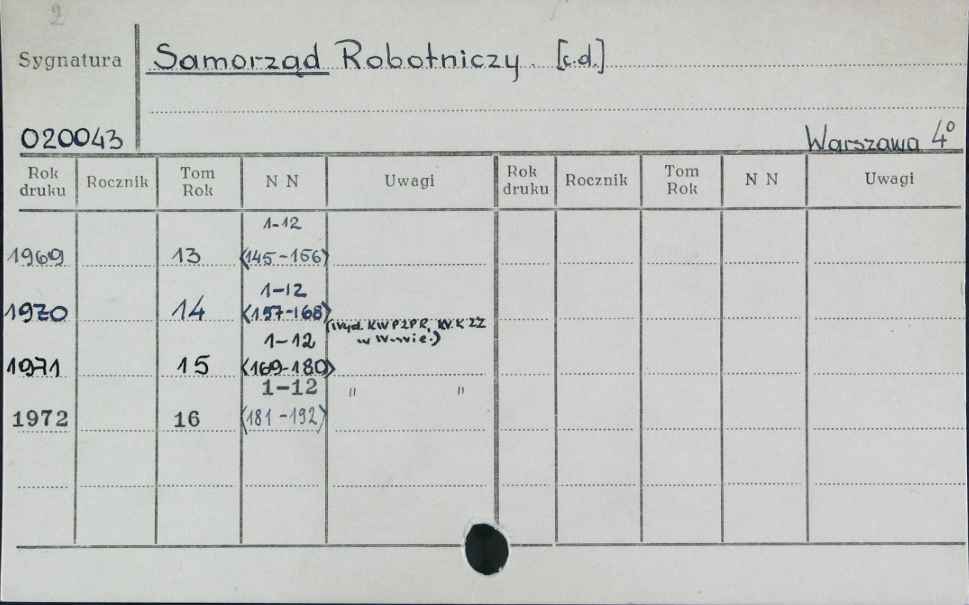 2
Sygnatura
Samorząd Robotniczy. [c.d.]
020043
Warszawa 4°
Rok druku Rocznik Tom Rok N N Uwagi Rok druku Rocznik Tom Rok N N Uwagi
1-12
1969 13 <145-156>
1-12
1970 14 <157-168>
(Wyd. KW PZPR, W.K.ZZ
1-12 w W-wie.)
1971 15 <169-180>
1-12 " "
1972 16 <181-192>